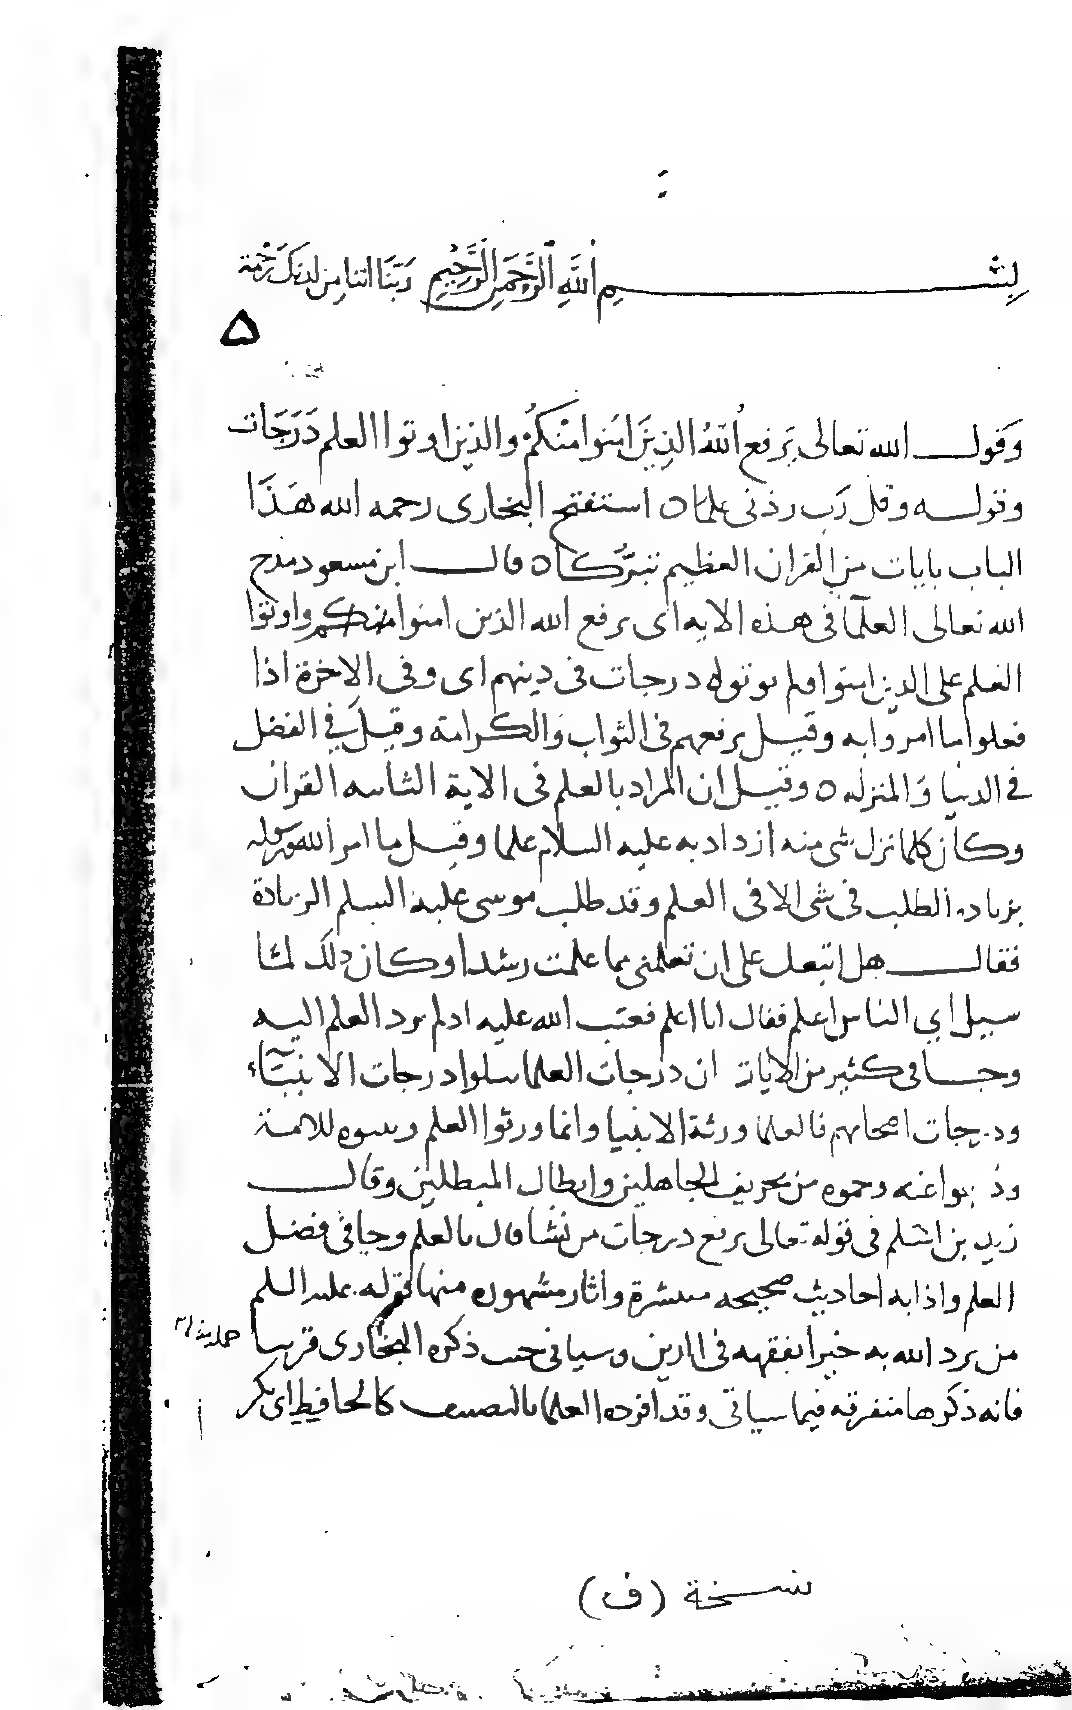 بسم الله الرحمن الرحيم ربنا اتنا من لدنك رحمة
وقول الله تعالى يرفع الله الذين امنوا منكم والذين اوتوا العلم درجات
وقوله وقل رب زدنى علما ٥ استفتح البخارى رحمه الله هذا
الباب بايات من القران العظيم تبركا ٥ قال ابن مسعود مدح
الله تعالى العلما فى هذه الايه اى يرفع الله الذين امنوا منكم واوتوا
العلم على الدين امنوا ولم يوتوه درجات فى دينهم اى وفى الاخرة اذا
فعلوا ما امروا به وقيل يرفعهم فى الثواب والكرامة وقيل فى الفضل
فى الدنيا والمنزله ٥ وقيل ان المراد بالعلم فى الاية الثانيه القران
وكان كلما نزل شى منه ازداد به عليه السلام علما وقيل ما امر الله رسوله
بزياده الطلب فى شى الا فى العلم وقد طلب موسى عليه السلم الزيادة
فقال هل اتبعك على ان تعلمنى مما علمت رشدا وكان ذلك لما
سيل اي الناس اعلم فقال انا اعلم فعتب الله عليه اذ لم يرد العلم اليه
وجا فى كثير من الايات ان درجات العلما تتلوا درجات الانبياء
ودرجات اصحابهم فالعلما ورثة الانبيا وانما ورثوا العلم وبينوه للامة
وذبوا عنه وحموه من تحريف الجاهلين وابطال المبطلين وقال
زيد بن اسلم فى قوله تعالى نرفع درجات من نشا قال بالعلم وجا فى فضل
العلم وادابه احاديث صحيحه منتشرة واثار مشهوره منها قوله عليه السلم
من يرد الله به خيرا يفقهه فى الدين وسياتى حيث ذكره البخارى قريبا
فانه ذكرها متفرقه فيما سياتى وقد افرده العلما بالتصنيف كالحافظ اى بكر
نسخة (ف)